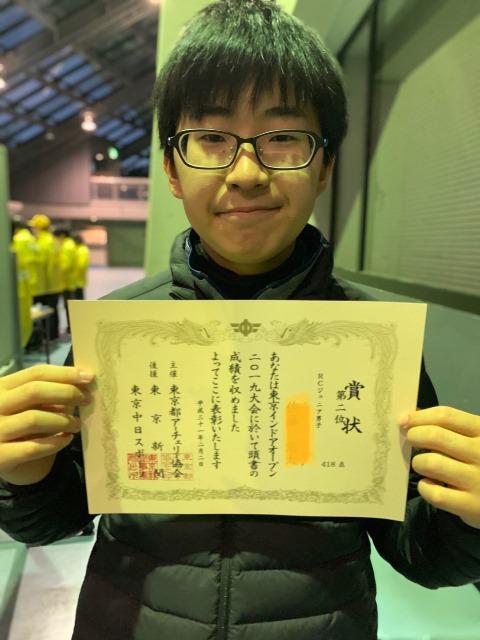 賞状
第二位
RCジュニア男子
418点
あなたは東京インドアオープン
二〇一九大会に於いて頭書の
成績を収めました
よってここに表彰します
平成三十一年二月二日
主催 東京都アーチェリー協会
後援 東京新聞
東京中日ス